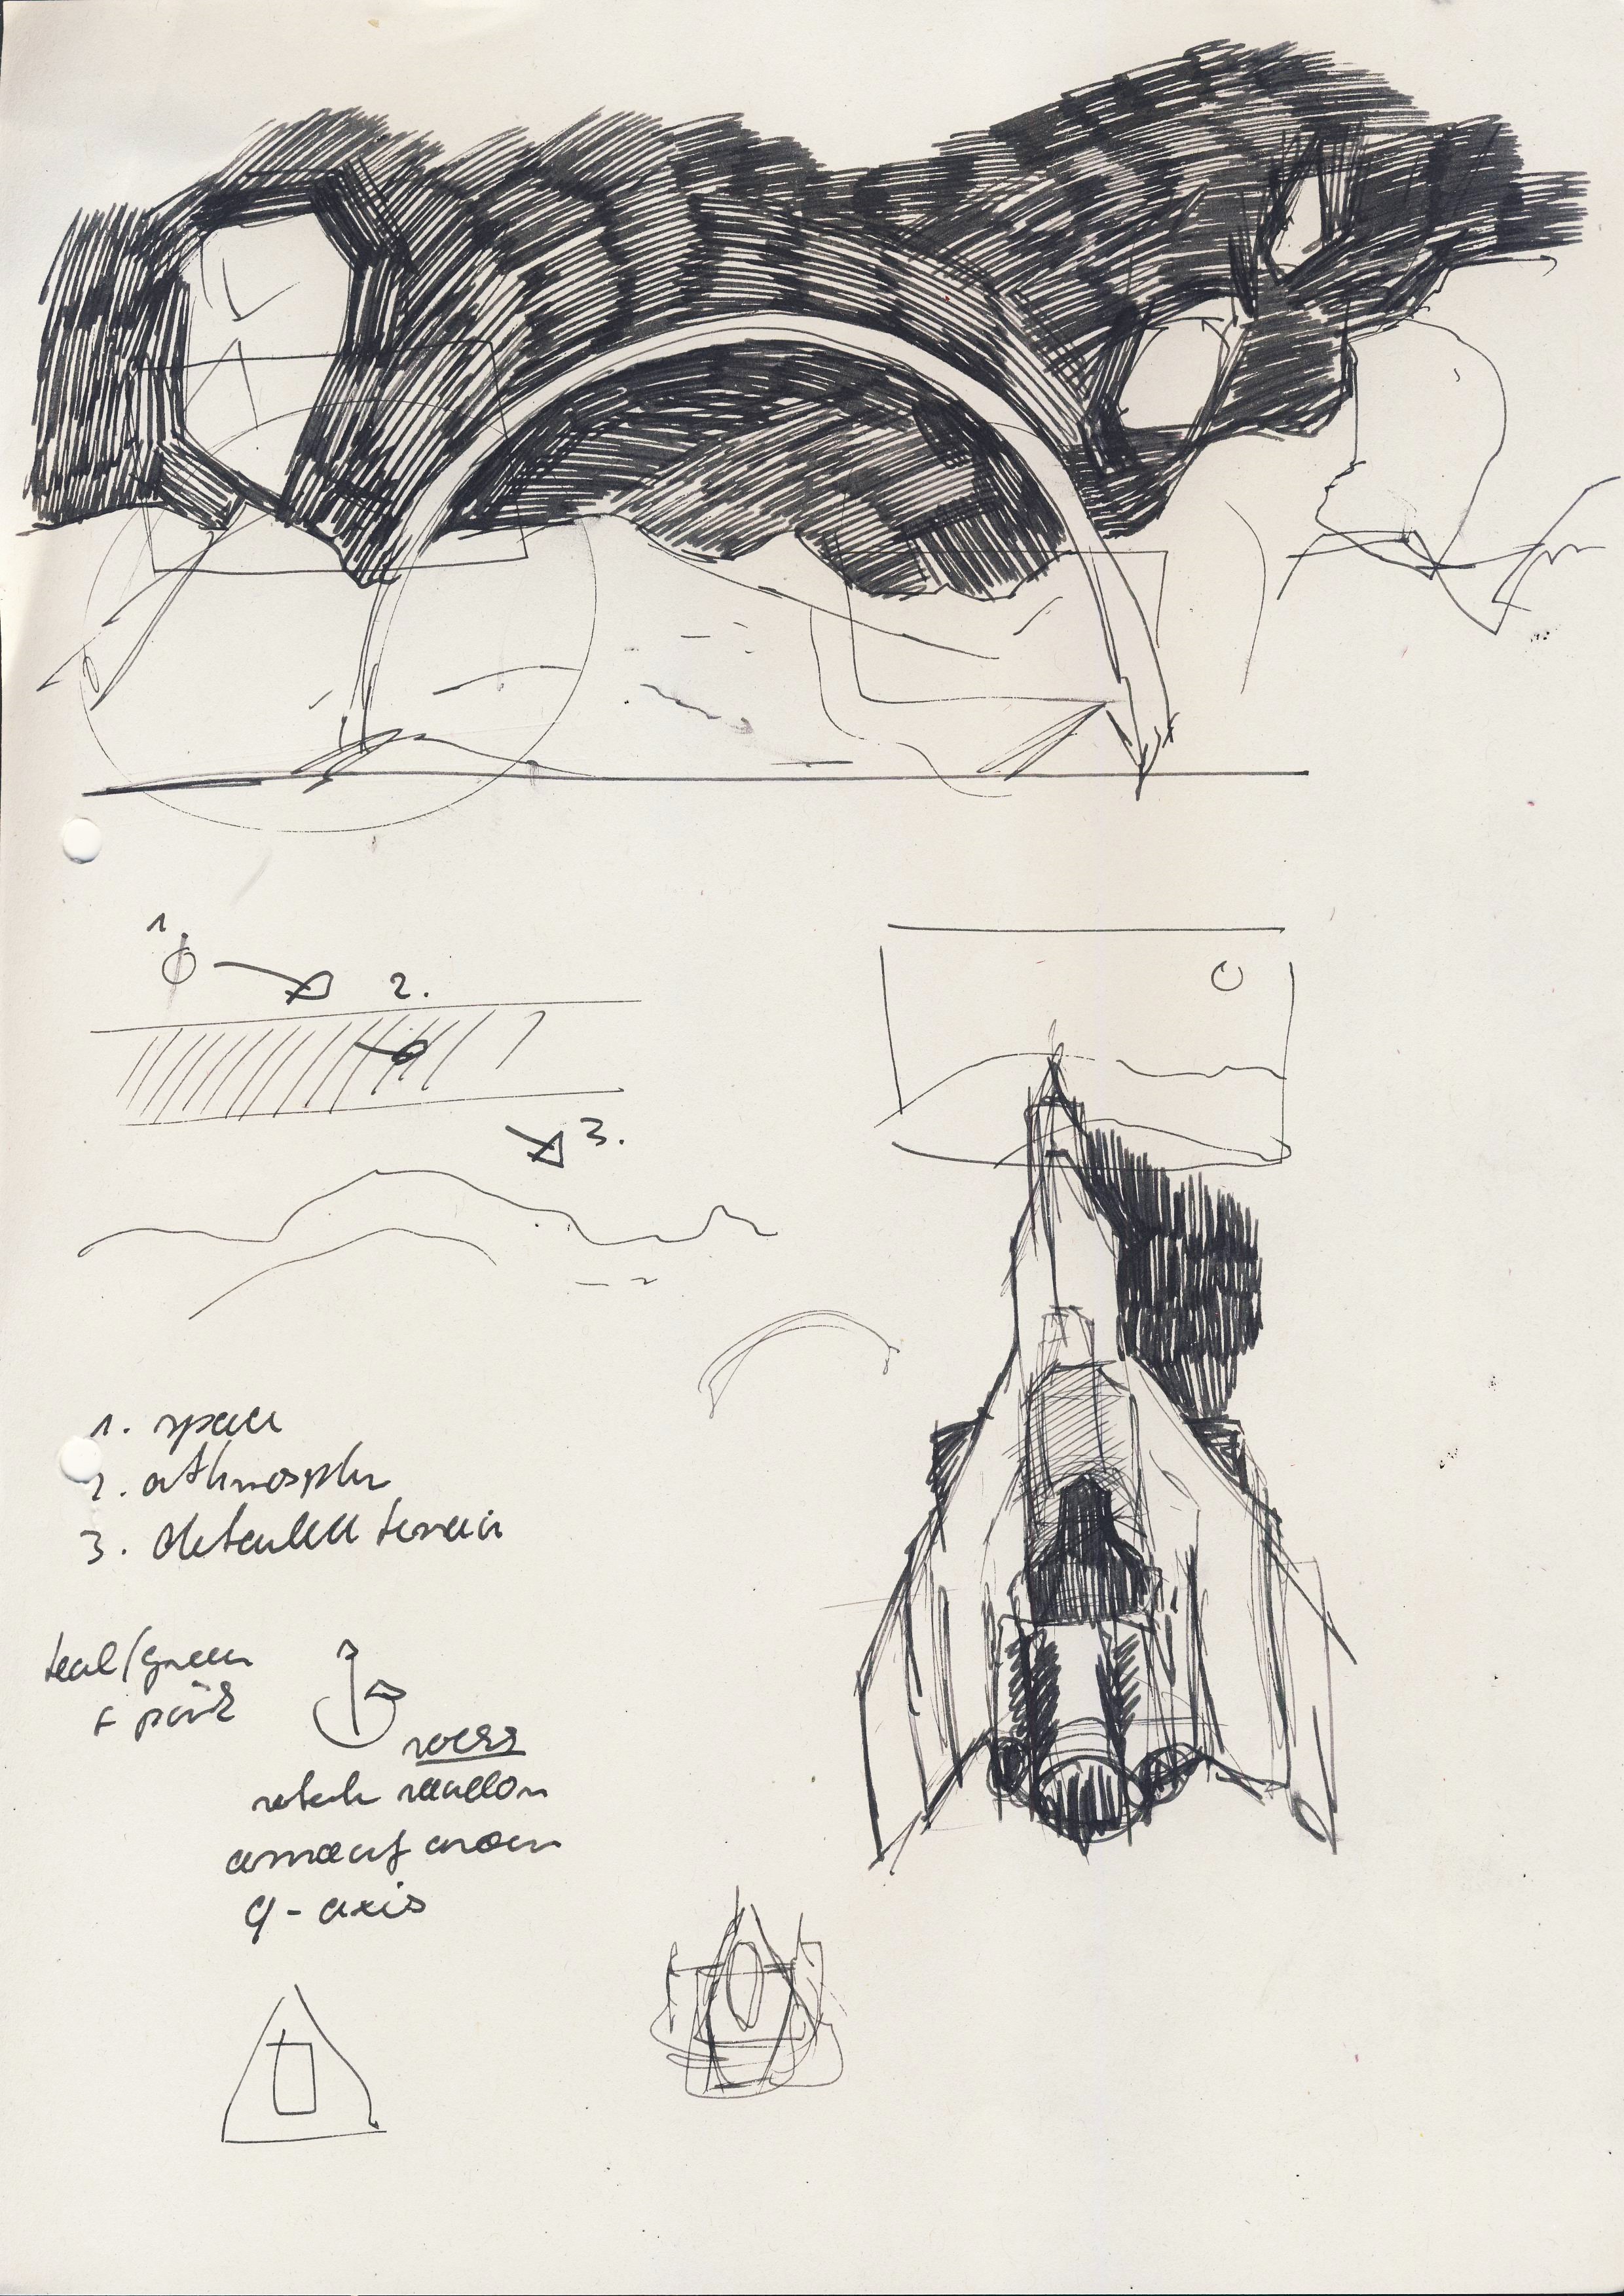 1.
2.
3.
1. space
2. athmosphe
3. detailed terrain
teal/green
+ pink
rocks
rotate random
amount aroun
y-axis